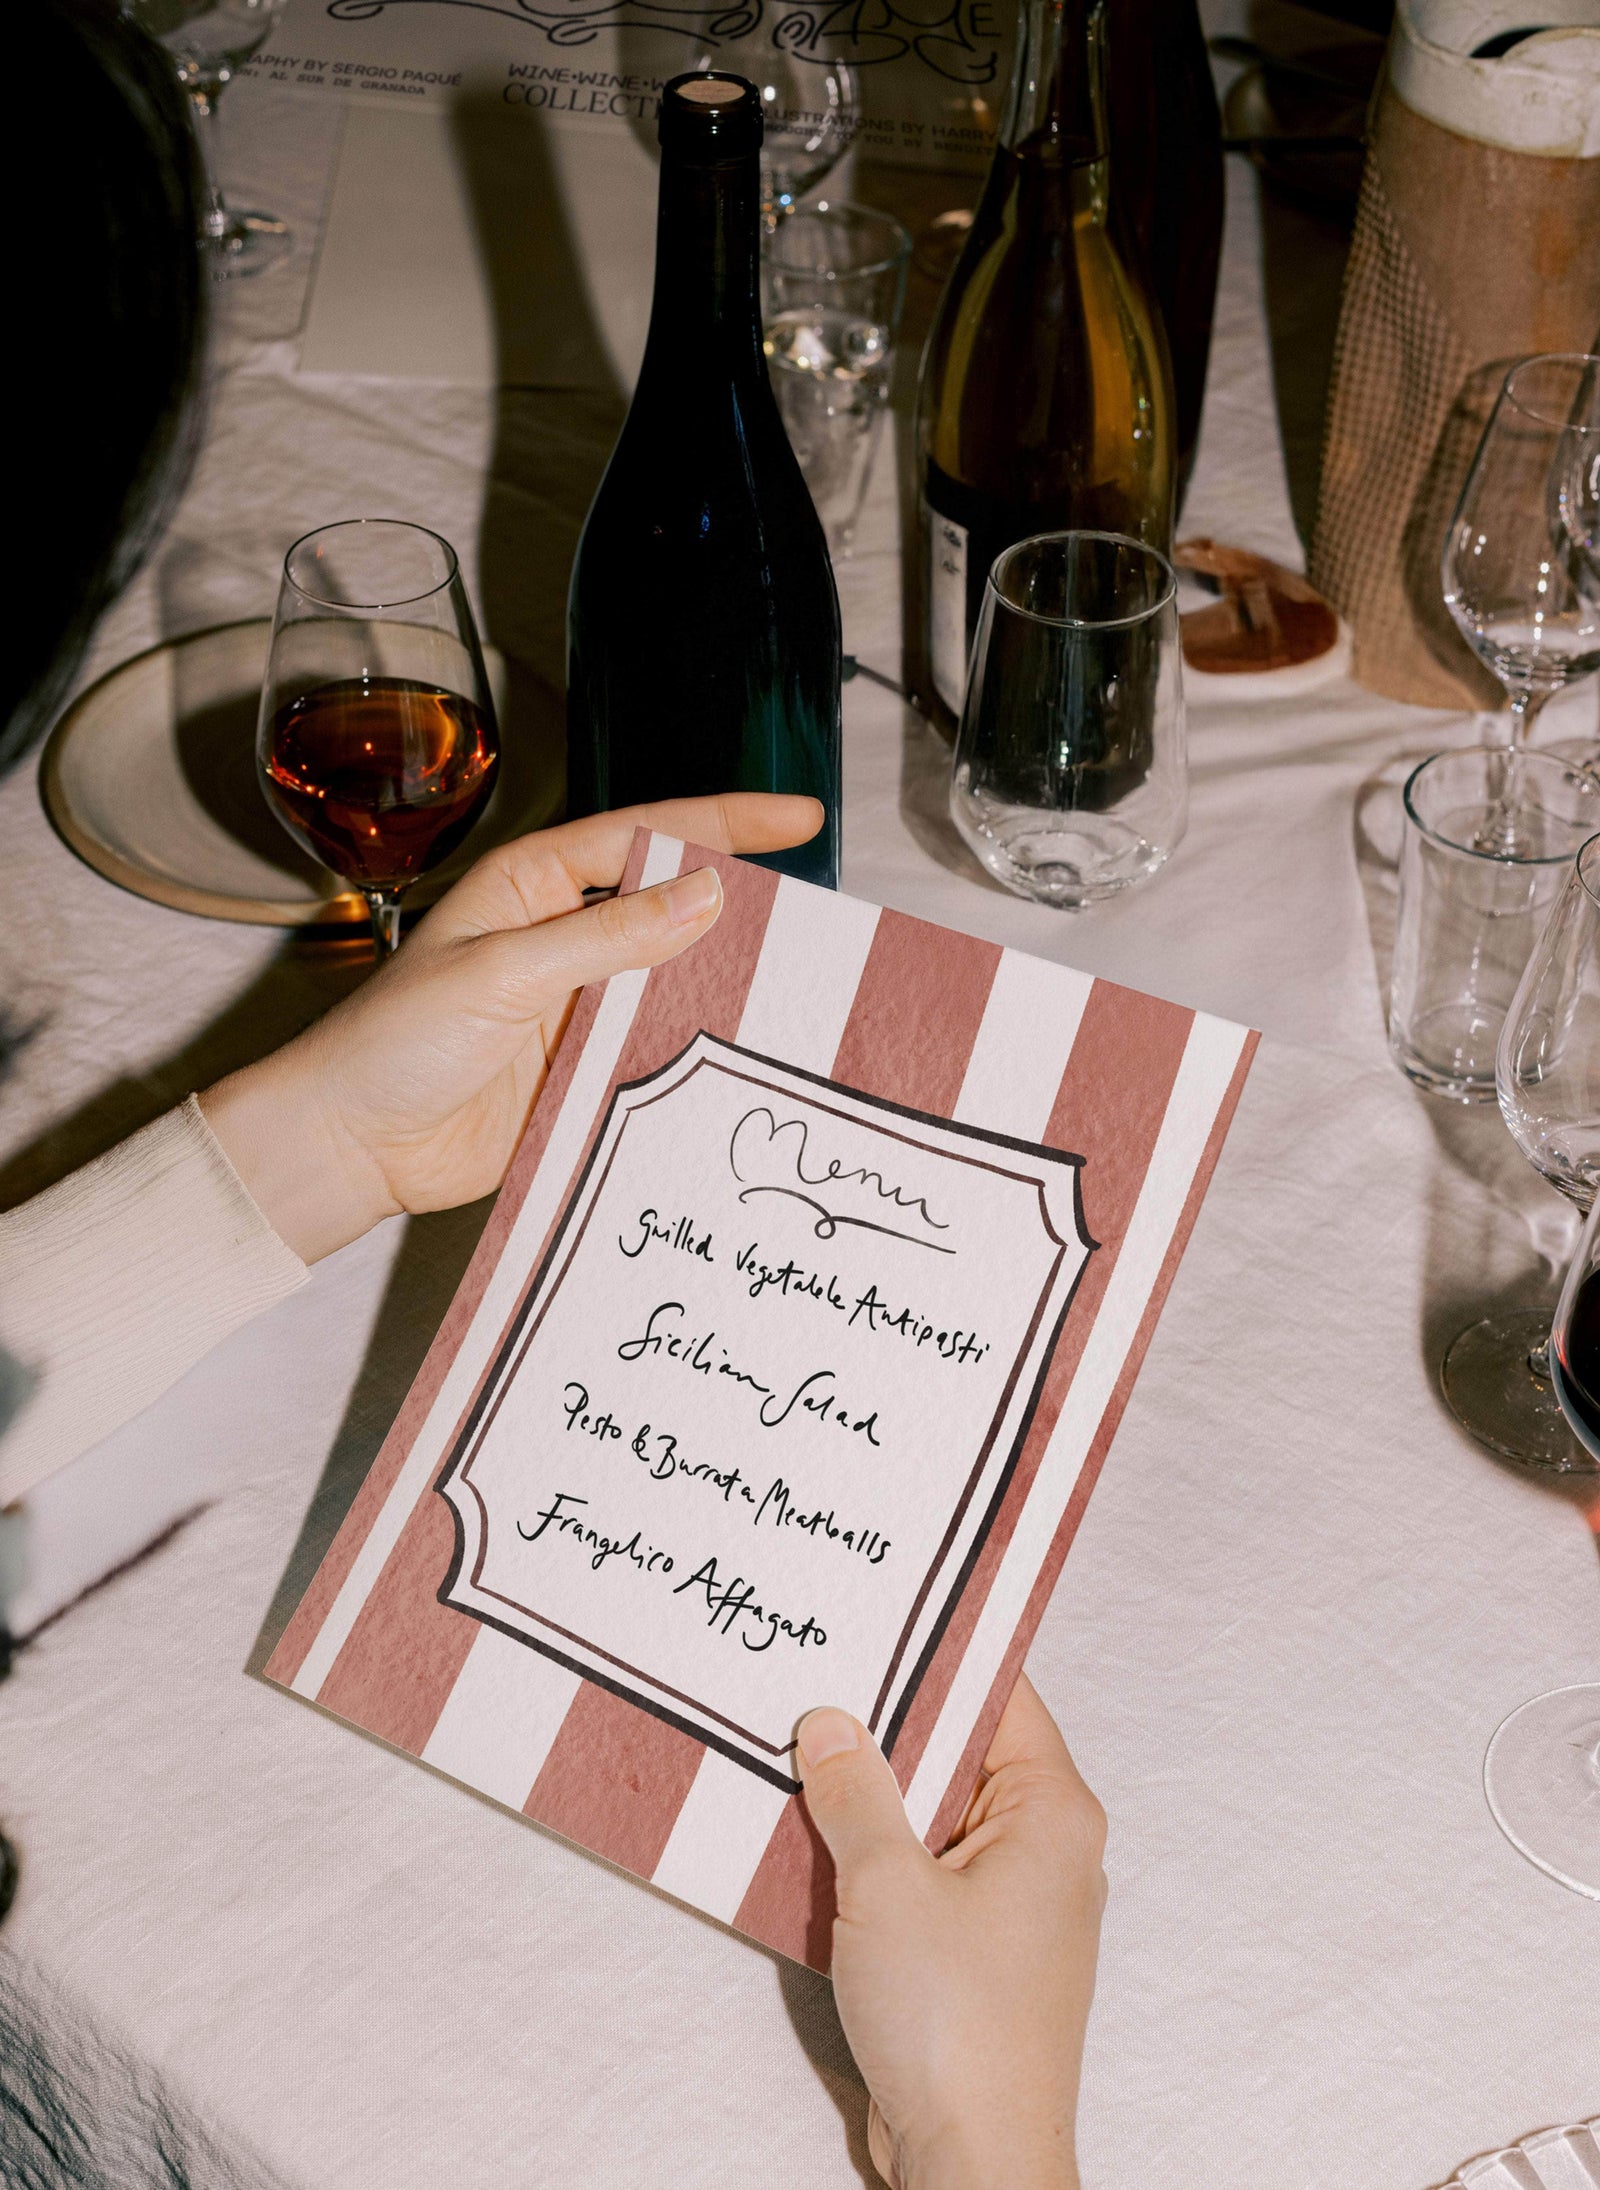 APHY BY SERGIO PAQUÉ
ON: AL SUR DE GRANADA
WINE•WINE•W
COLLECTI
LUSTRATIONS BY HARRY
ROUGHT TO YOU BY
Menu
Grilled Vegetable Antipasti
Sicilian Salad
Pesto & Burrata Meatballs
Frangelico Affagato